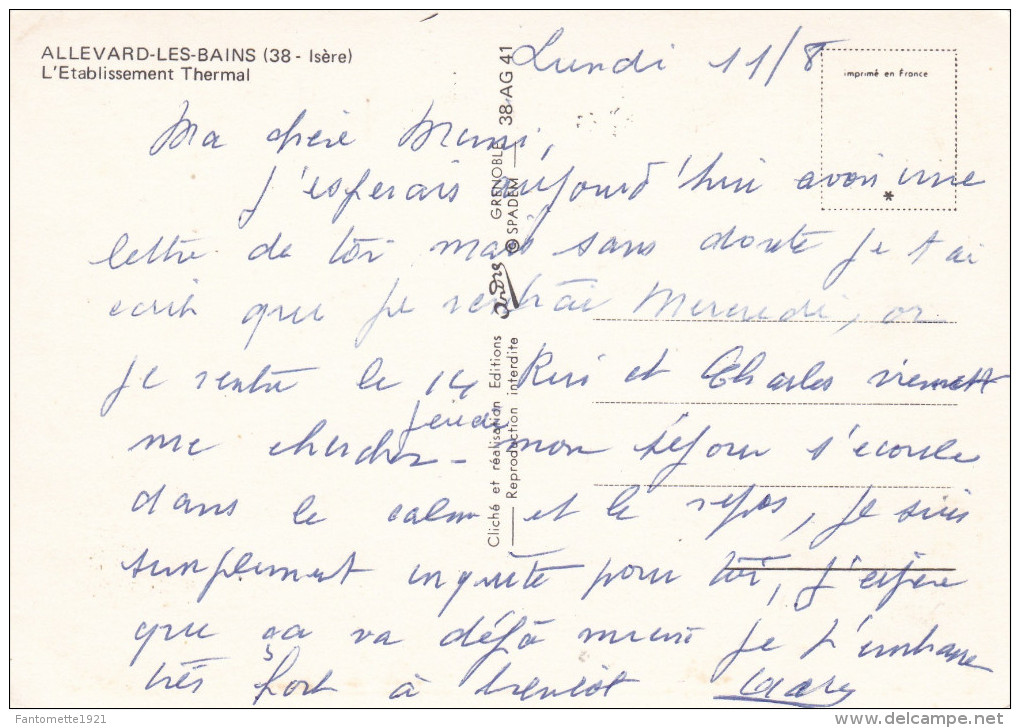 ALLEVARD-LES-BAINS (38 - Isère)
L'Etablissement Thermal
imprimé en France
Lundi 11/8
Ma chère Mimi,
J'esperais aujourd'hui avoir une
lettre de toi mais sans doute je t'ai
ecrit que je rentrai Mercredi, or
je rentre le 14 Riri et Charles viennent
jeudi
me chercher - mon séjour s'écoule
dans le calme et le repos, je suis
simplement inquiète pour toi, j'espère
que ça va déjà mieux je t'embrasse
très fort à bientôt
Cliché et réalisation Editions André GRENOBLE 38-AG 41
Reproduction interdite © SPADEM
*
Fantomette1921
www.delcampe.net